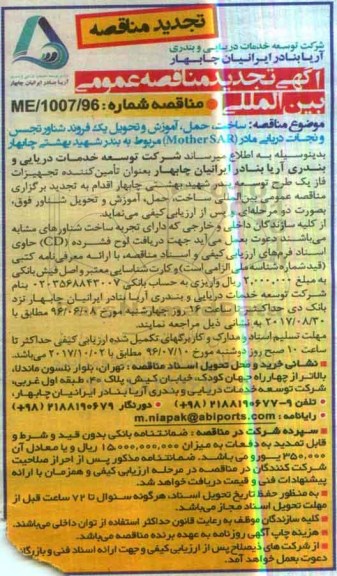 تجدید مناقصه
شرکت توسعه خدمات دریایی و بندری
آریا بنادر ایرانیان چابهار
آریا بنادر ایرانیان چابهار
آگهی تجدید مناقصه عمومی
بین المللی • مناقصه شماره: ME/1007/96
موضوع مناقصه: ساخت، حمل، آموزش و تحویل یک فروند شناور تجسس
و نجات دریایی مادر (Mother SAR) مربوط به بندر شهید بهشتی چابهار
بدینوسیله به اطلاع میرساند شرکت توسعه خدمات دریایی و
بندری آریا بنادر ایرانیان چابهار بعنوان تأمین کننده تجهیزات
فاز یک طرح توسعه بندر شهید بهشتی چابهار اقدام به تجدید برگزاری
مناقصه عمومی بین المللی ساخت، حمل، آموزش و تحویل شناور فوق،
بصورت دو مرحله ای و پس از ارزیابی کیفی می نماید.
از کلیه سازندگان داخلی و خارجی که دارای تجربه ساخت شناورهای مشابه
می باشند دعوت بعمل می آید جهت دریافت لوح فشرده (CD) حاوی
اسناد فرم های ارزیابی کیفی و اسناد مناقصه، با ارائه معرفی نامه کتبی
(قید شماره شناسه ملی الزامی است) و کارت شناسایی معتبر و اصل فیش بانکی
به مبلغ ریال واریزی به حساب بانکی بنام
شرکت توسعه خدمات دریایی و بندری آریا بنادر ایرانیان چابهار نزد
بانک دی حداکثر تا ساعت ۱۶ روز چهارشنبه مورخ ۹۶/۰۶/۰۸ مطابق با
۲۰۱۷/۰۸/۳۰ به نشانی ذیل مراجعه نمایند.
مهلت تسلیم اسناد و مدارک و کاربرگهای تکمیل شده ارزیابی کیفی حداکثر تا
ساعت ۱۰ صبح روز دوشنبه مورخ ۹۶/۰۷/۱۰ مطابق با ۲۰۱۷/۱۰/۰۲ می باشد.
■ نشانی خرید و محل تحویل اسناد مناقصه: تهران، بلوار نلسون ماندلا،
بالاتر از چهارراه جهان کودک، خیابان کیش، پلاک ۴۰، طبقه اول غربی،
شرکت توسعه خدمات دریایی و بندری آریا بنادر ایرانیان چابهار،
■ تلفن ۹-۲۱۸۸۱۹۰۶۷۷ (۹۸+) • دورنگار ۲۱۸۸۱۹۰۶۷۹ (۹۸+)
■ رایانامه: m.niapak@abiports.com
■ سپرده شرکت در مناقصه: ضمانتنامه بانکی بدون قید و شرط و
قابل تمدید به دفعات به میزان ۱۵،۰۰۰،۰۰۰،۰۰۰ ریال و یا معادل آن
۳۵۰،۰۰۰ یورو می باشد. ضمانتنامه مذکور پس از احراز صلاحیت
شرکت کنندگان در مناقصه در مرحله ارزیابی کیفی و همزمان با ارائه
پیشنهادات فنی و قیمت دریافت خواهد شد.
■ به منظور حفظ تاریخ تحویل اسناد، هرگونه سئوال تا ۷۲ ساعت قبل از
مهلت تحویل اسناد مجاز می باشد.
■ کلیه سازندگان موظف به رعایت قانون حداکثر استفاده از توان داخلی می باشند.
■ هزینه چاپ آگهی روزنامه به عهده برنده مناقصه می باشد.
■ از شرکت های ذیصلاح پس از ارزیابی کیفی و جهت ارائه اسناد فنی و بازرگانی
دعوت بعمل خواهد آمد.